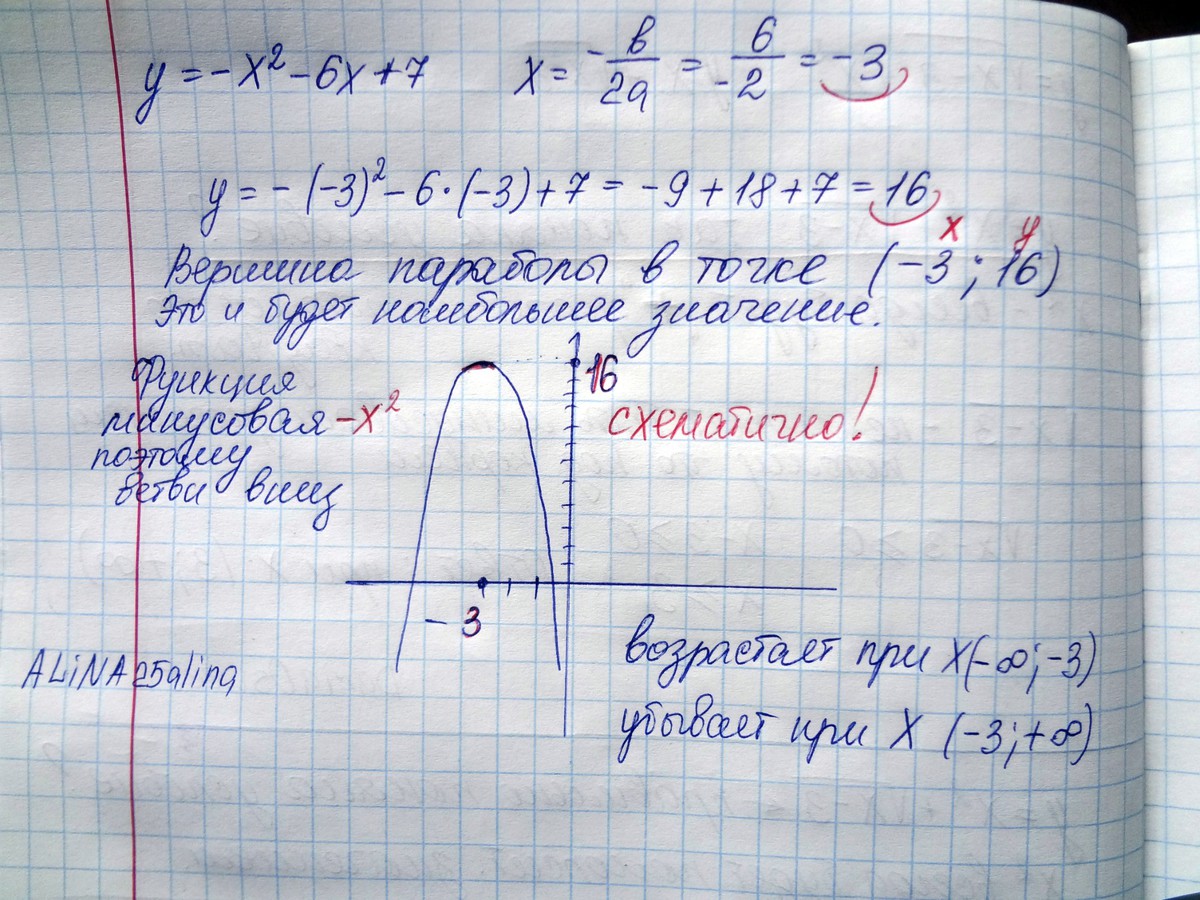 y = -x² - 6x + 7    x = -в/2а = 6/-2 = -3
y = -(-3)² - 6·(-3) + 7 = -9 + 18 + 7 = 16
x y
Вершина параболы в точке (-3; 16)
Это и будет наибольшее значение.
Функция
минусовая -x²
поэтому
ветви вниз
16
схематично!
-3
ALiNA25alina
возрастает при X(-∞; -3)
убывает при X (-3; +∞)